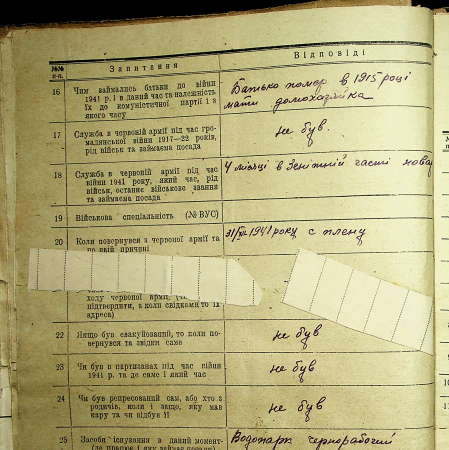 №№ п-п.
Запитання
Відповіді
16
Чим займались батьки до війни
1941 р. і в даний час та належність
їх до комуністичної партії і з
якого часу
Батько помер в 1915 році
мати домохазяйка
17
Служба в червоній армії під час гро-
мадянської війни 1917—22 років,
рід військ та займаєма посада
не був.
18
Служба в червоній армії під час
війни 1941 року, який час, рід
військ, останнє військове звання
та займаєма посада
4 місяці в Зенітній часті
19
Військова спеціальність (№ ВУС)
20
Коли повернувся з червоної армії та
по якій причині
31/XII 1941 року с плену
ходу червоної армії,
підтвердити, а коли свідками то їх
адреса)
22
Якщо був евакуйований, то коли по-
вернувся та звідки саме
не був
23
Чи був в партизанах під час війни
1941 р. та де саме і який час
не був
24
Чи був репресований сам, або хто з
родичів, коли і защо, яку мав
кару та чи відбув її
не був
25
Засоби існування в даний момент
(де працює і яку займає посаду)
Водопарк чернорабочий